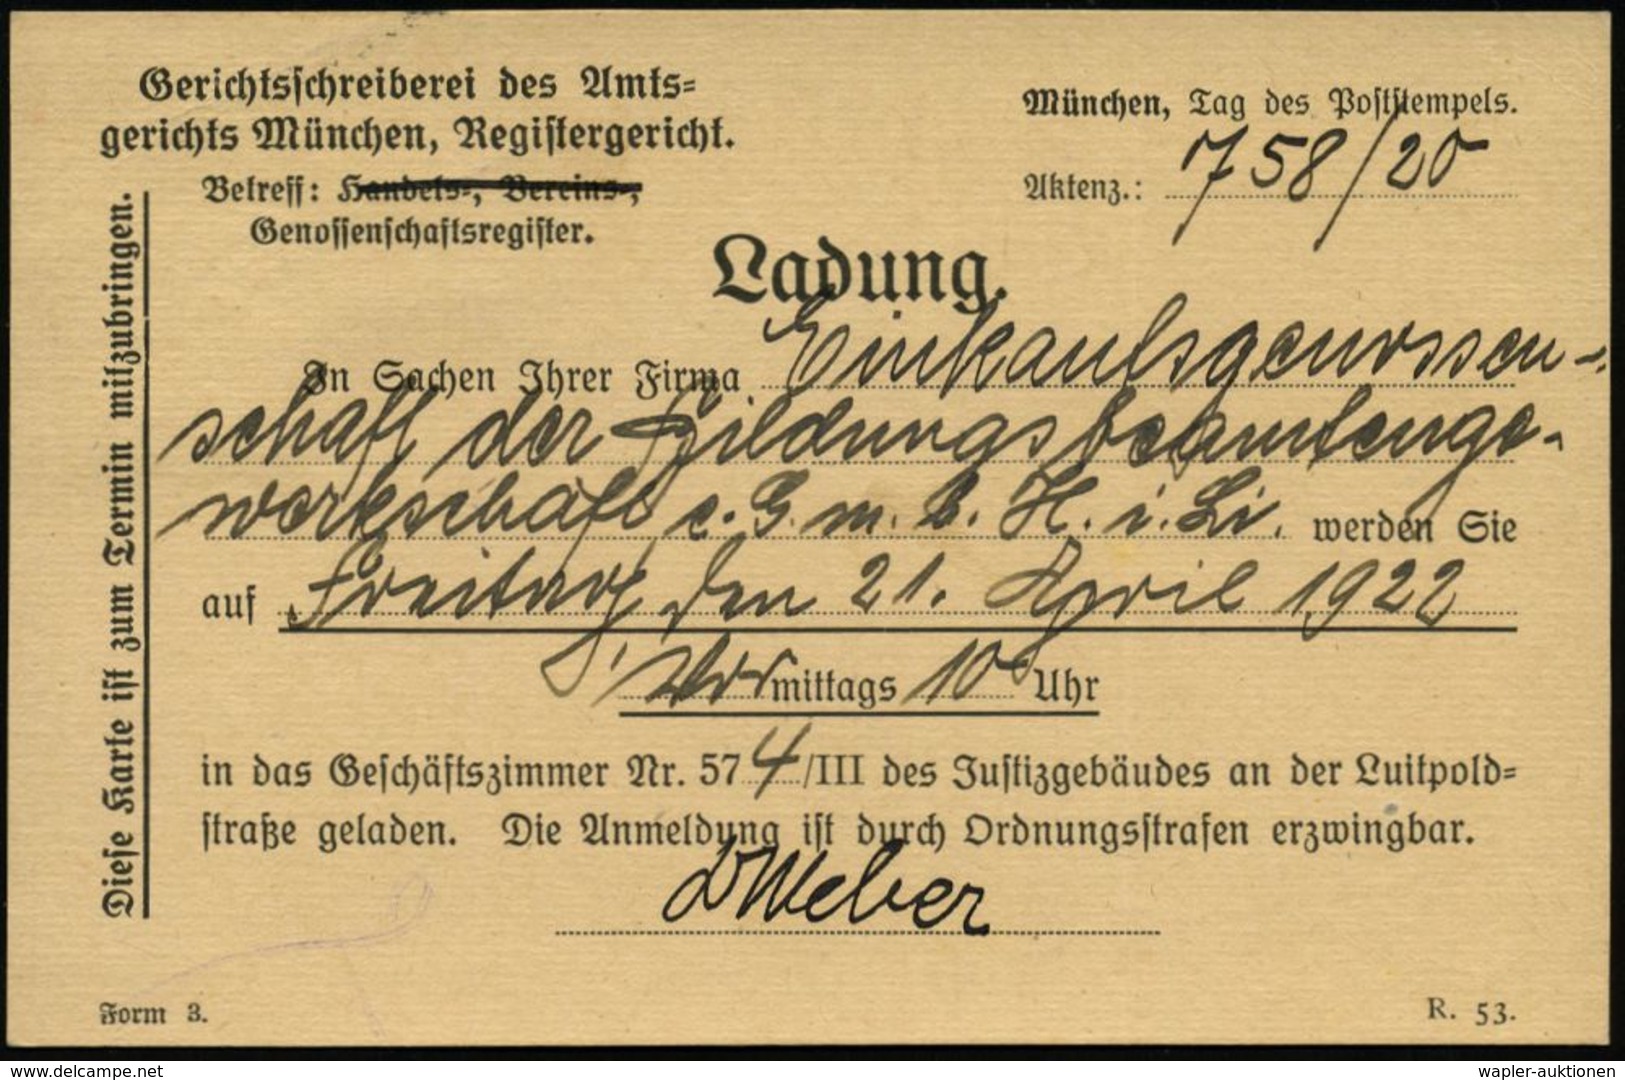 Gerichtsschreiberei des Amts=
gerichts München, Registergericht.
Betreff: Handels=, Vereins=,
Genossenschaftsregister.
München, Tag des Poststempels.
Aktenz.: 758/20
Diese Karte ist zum Termin mitzubringen.
Ladung.
In Sachen Ihrer Firma Einkaufsgenossen-
schaft der Bildungsbeamtenge-
werkschaft e. G. m. b. H. i. Li. werden Sie
auf Freitag, den 21. April 1922
Vormittags 10 Uhr
in das Geschäftszimmer Nr. 574/III des Justizgebäudes an der Luitpold=
straße geladen. Die Anmeldung ist durch Ordnungsstrafen erzwingbar.
Weber
Form 3.
R. 53.
www.delcampe.net
wapler-auktionen